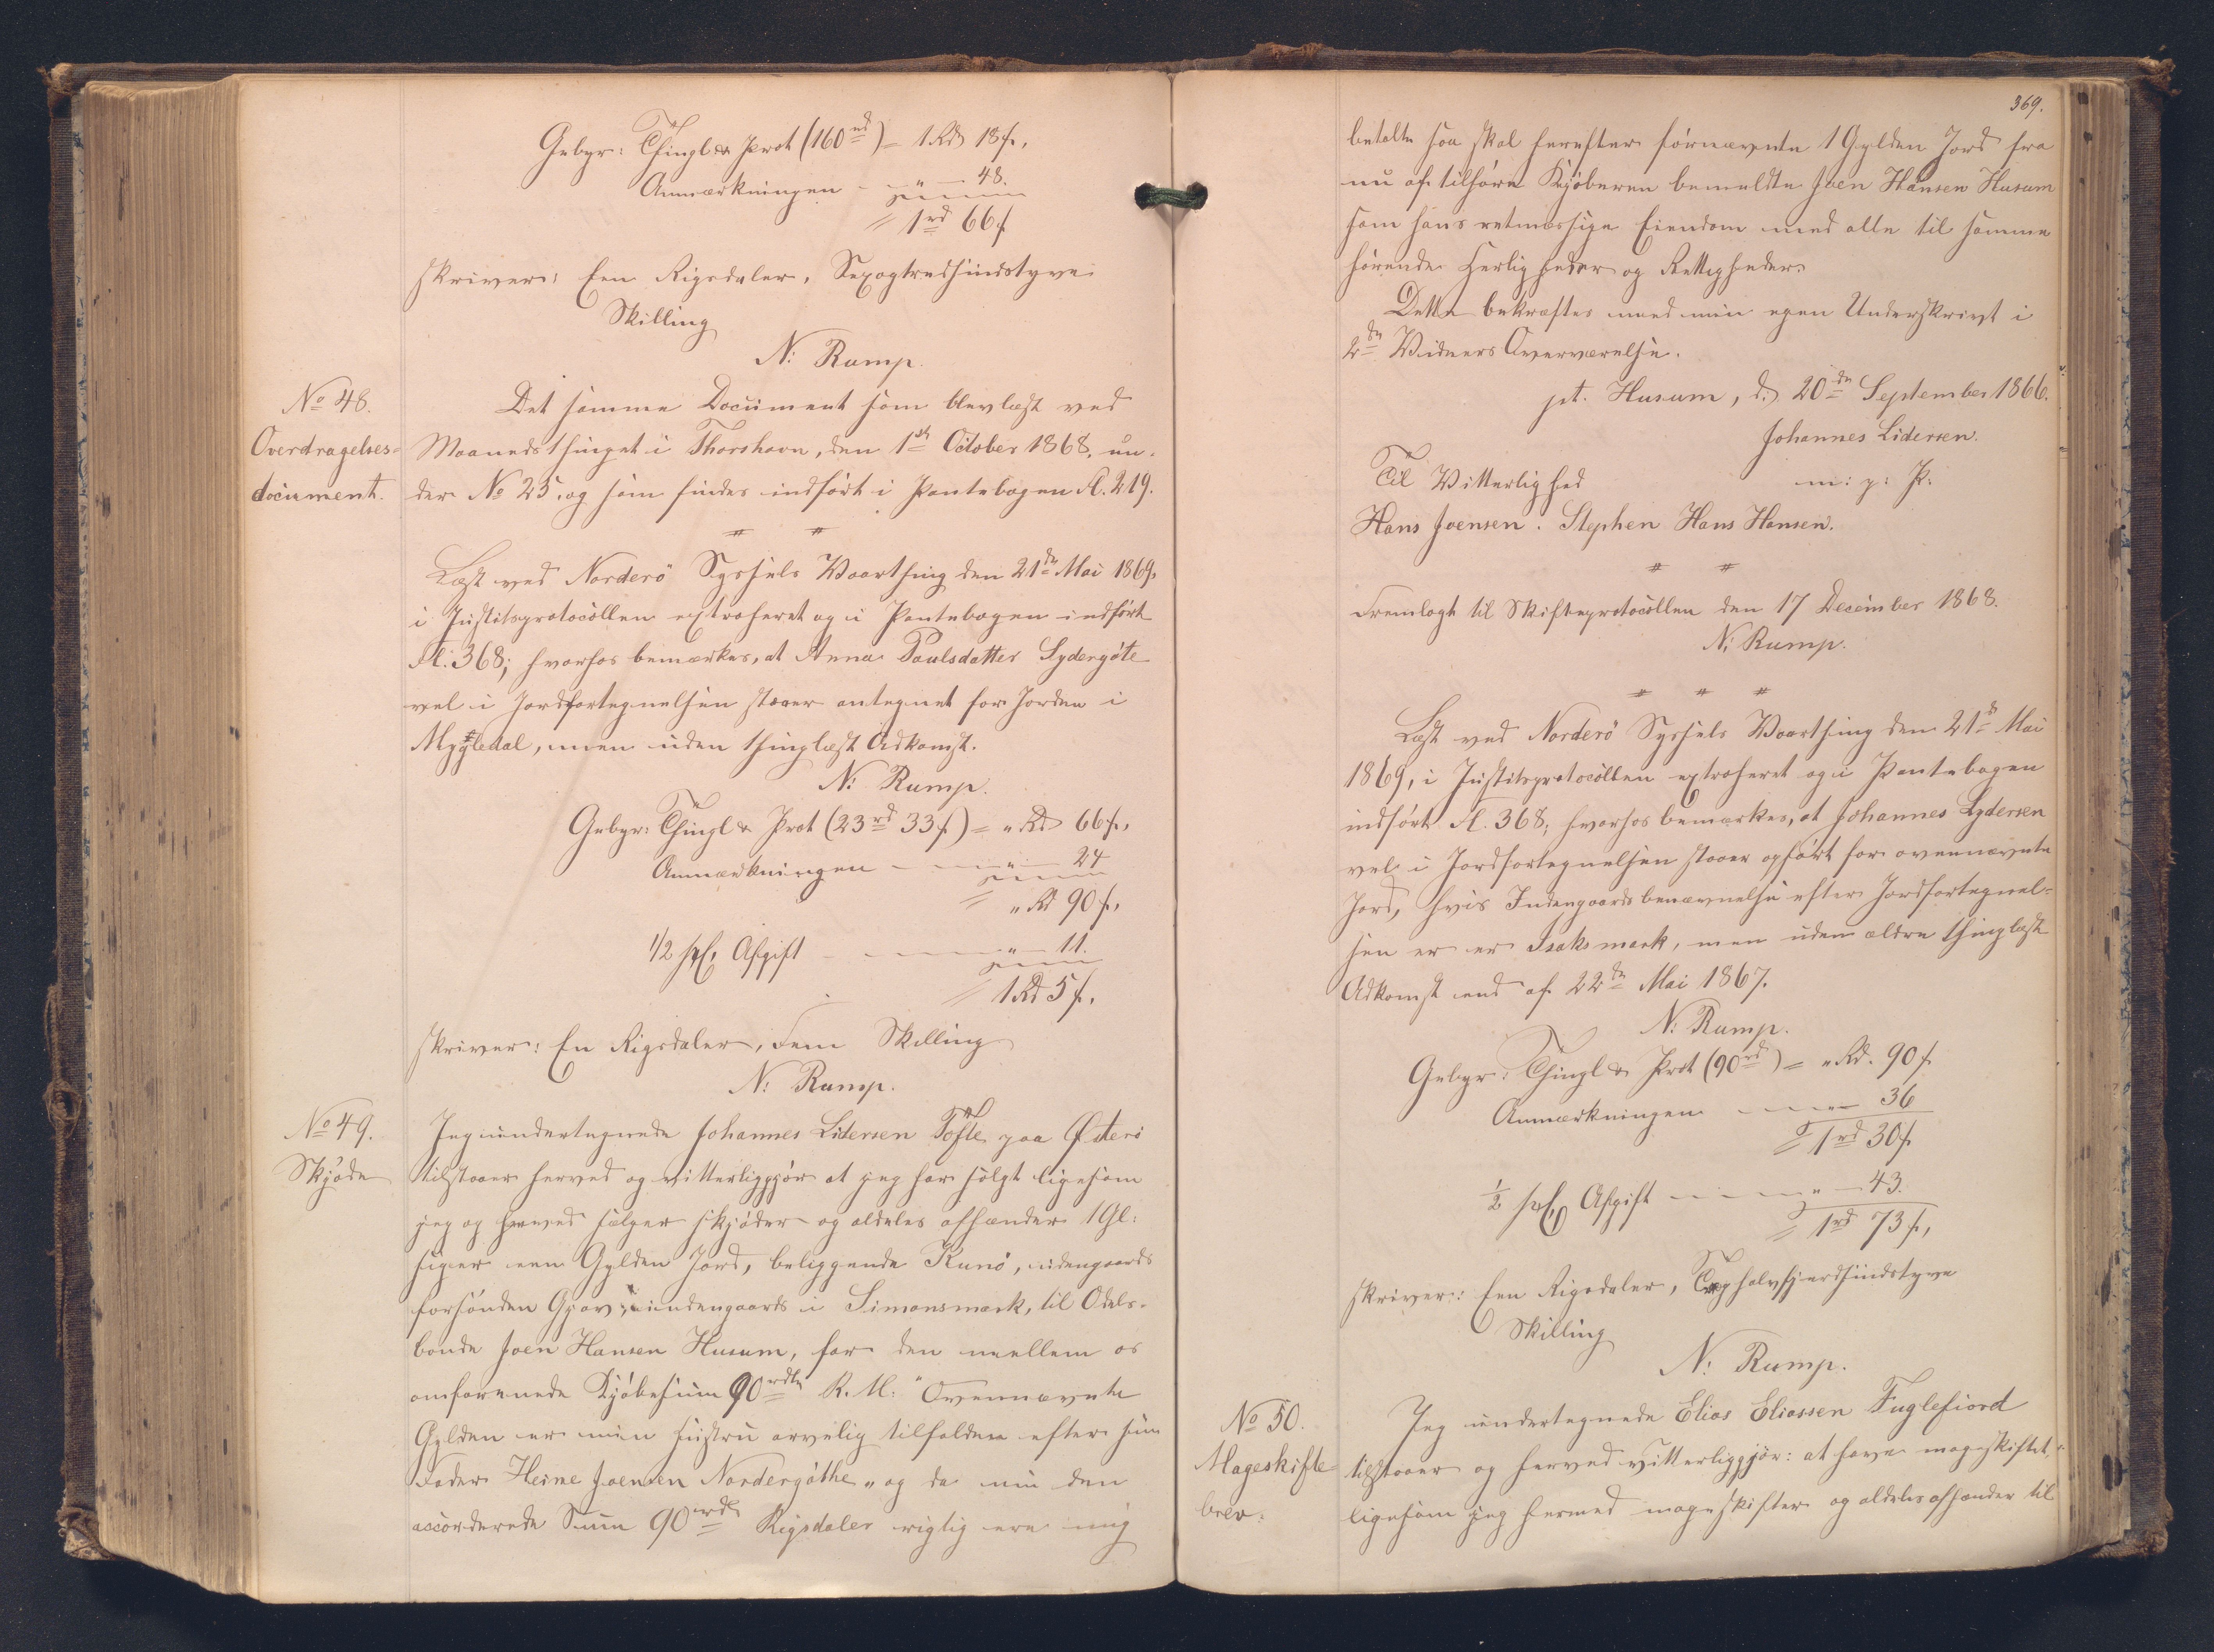 Gebyr: Thingl & Prot (160rd) = 1 Rd 18 s.
Anmærkningen - - " - 48.
= 1rd 66 s
skriver: Een Rigsdaler, Sexogtredsindstyve
Skilling
N: Rump.
No 48.
Overdragelses-
document.
Det samme Document som blev læst ved
Maanedsthinget i Thorshavn, den 1ste October 1868, un-
der No 25, og som findes indført i Pantebogen fl. 219.
Læst ved Norderö Syssels Vaarthing den 21de Mai 1869,
i Justitsprotocollen extraheret og i Pantebogen indført
fl: 368; hvorhos bemærkes, at Anna Poulsdatter Sydergøte
vel i Jordfortegnelsen staaer antegnet for Jorden i
Mygledal, men uden thinglæst Adkomst.
N: Rump.
Gebyr: Thingl & Prot (23rd 33 s) = " Rd 66 s,
Anmærkningen - - " - 24
= " Rd 90 s,
1/2 pCt Afgift - - " - 11.
= 1 Rd 5 s,
skriver: En Rigsdaler, Fem Skilling
N: Rump.
No 49.
Skjøde
Jeg undertegnede Johannes Lidersen Tofte paa Østerö
tilstaaer herved og vitterliggjør at jeg har solgt ligesom
jeg og herved sælger skjøder og aldeles afhænder 1 Gl:
siger een Gylden Jord, beliggende Kunö, udengaards
forsønden Gjøv, indengaards i Simonsmark, til Odels-
bonde Joen Hansen Husum, for den mellem os
omforenede Kjøbesum 90 rdlr R. M. " Ovennævnte
Gylden er min Hustru arvelig tilfalden efter sin
Fader Heine Joensen Nordergøthe " og da nu den
accorderede Sum 90 rdlr Rigsdaler rigtig ere mig
369.
betalte saa skal herefter fornævnte 1 Gylden Jord fra
nu af tilhøre Kjøberen bemeldte Joen Hansen Husum
som hans retmæssige Eiendom med alle til samme
hørende Herligheder og Rettigheder.
Dette bekræftes med min egen Underskrivt i
2de Vidners Overværelse.
pt. Husum, d. 20de September 1866.
Johannes Lidersen.
Til Vitterlighed m: p: P:
Hans Joensen. Stephen Hans Hansen.
Fremlagt til Skifteprotocollen den 17 December 1868.
N: Rump.
Læst ved Norderö Syssels Vaarthing den 21de Mai
1869, i Justitsprotocollen extraheret og i Pantebogen
indført fl. 368; hvorhos bemærkes, at Johannes Lydersen
vel i Jordfortegnelsen staaer opført for ovennævnte
Jord, hvis Indengaardsbenævnelse efter Jordfortegnel-
sen er er Isaksmark, men uden ældre thinglæst
Adkomst end af 22de Mai 1867.
N: Rump.
Gebyr: Thingl & Prot (90rd) = " Rd. 90 s
Anmærkningen - - 36
= 1rd 30 s
1/2 pCt Afgift - - " - 43.
= 1rd 73 s,
skriver: Een Rigsdaler, Treghalvfjerdsindstyve
Skilling
N: Rump.
No 50.
Mageskifte-
brev.
Jeg undertegnede Elias Eliassen Fuglefiord
tilstaaer og herved vitterliggjør: at have mageskiftet,
ligesom jeg hermed mageskifter og aldeles afhænder til